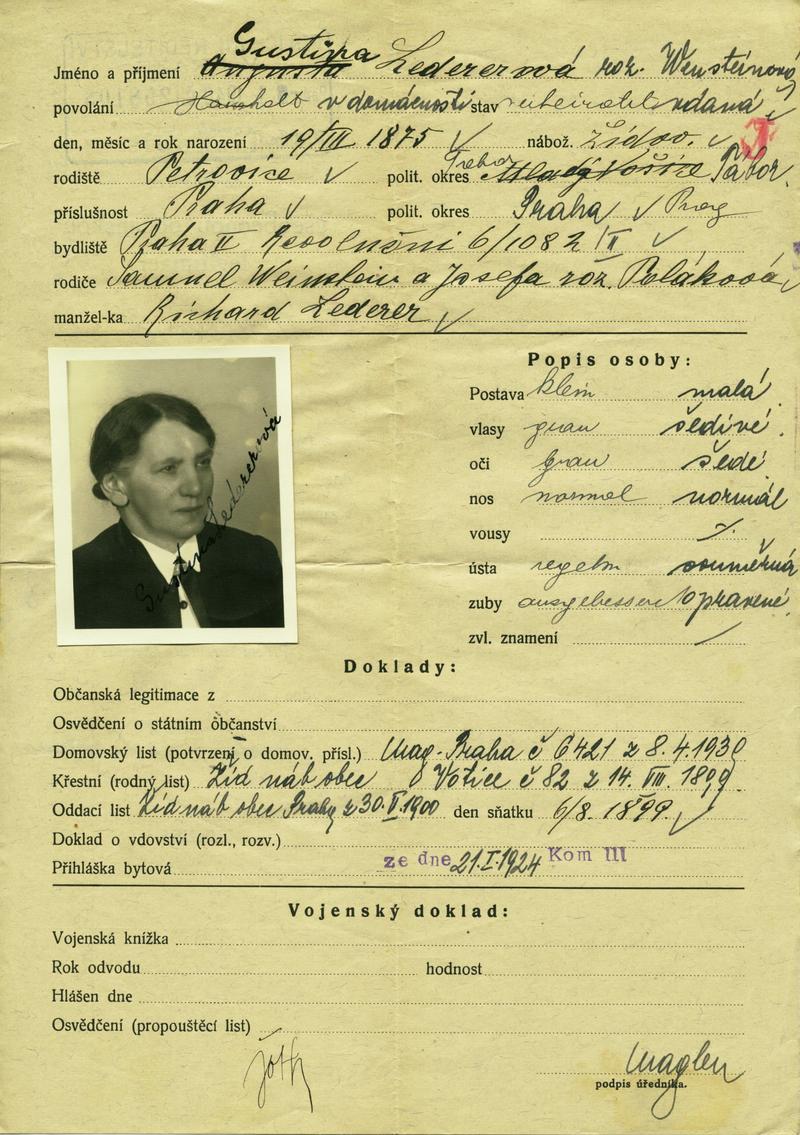 Gustina
Jméno a příjmení Augusta Ledererová roz. Wensteinová
povolání Haushalt v domácnosti stav vdaná
den, měsíc a rok narození 19/III 1875 nábož. židov. J
rodiště Petrovice polit. okres Mladá Vožice Tábor
příslušnost Praha polit. okres Praha Prag
bydliště Praha II Revoluční 6/1082/II
rodiče Samuel Weinstein a Josefa roz. Poláková
manžel-ka Richard Lederer
Popis osoby:
Postava klein malá
vlasy grau šedivé
oči grau šedé
nos normal normál
vousy
ústa regelm souměrná
zuby ausgebessert opravené
zvl. znamení
Gustina Ledererová
Doklady:
Občanská legitimace z
Osvědčení o státním občanství
Domovský list (potvrzení o domov. přísl.) Mag. Praha č 6421 z 8.4.1930
Křestní (rodný list) Žid náb obec Votice č 82 z 14. VII. 1899
Oddací list Žid náb obec Prahy z 30. 1900 den sňatku 6/8. 1899
Doklad o vdovství (rozl., rozv.)
Přihláška bytová ze dne 21.I.1924 Kom III
Vojenský doklad:
Vojenská knížka
Rok odvodu hodnost
Hlášen dne
Osvědčení (propouštěcí list)
podpis úředníka.